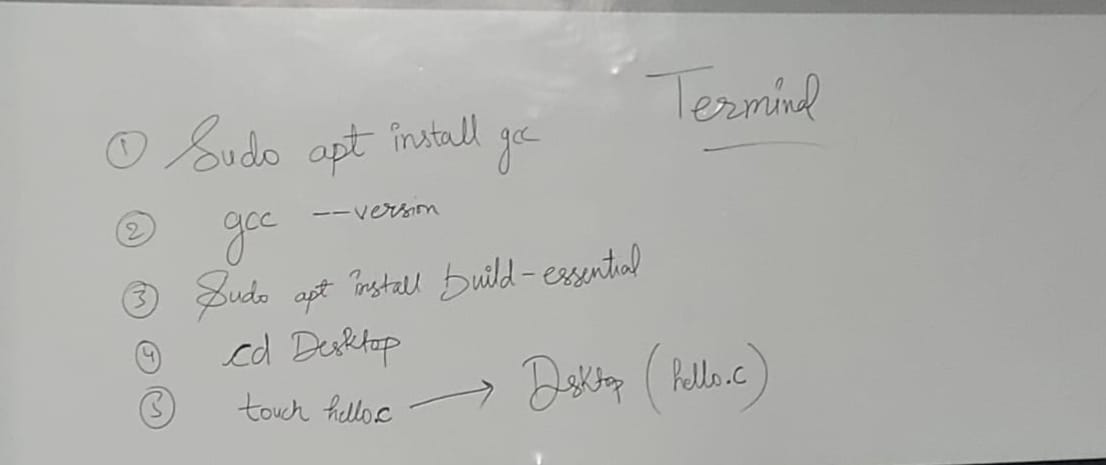 Terminal
① Sudo apt install gcc
② gcc --version
③ Sudo apt install build-essential
④ cd Desktop
⑤ touch hello.c → Dsktop (hello.c)